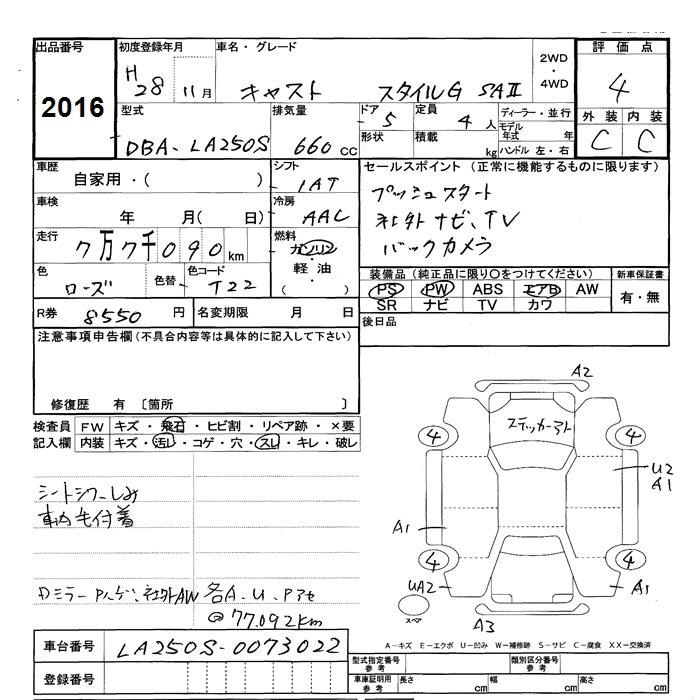 出品番号 初度登録年月 車名・グレード 評価点
2016 H28 11月 キャスト スタイルG SAⅡ 2WD・4WD 4
型式 排気量 ドア 5 定員 4人 ディーラー・並行 外装 内装
DBA-LA250S 660cc 形状 積載 kg モデル年式 年 C C
ハンドル 左・右
車歴 自家用・( ) シフト 1AT セールスポイント(正常に機能するものに限ります)
プッシュスタート
車検 年 月( 日) 冷房 AAC 社外ナビ、TV
走行 7万7千090km 燃料 ガソリン・軽油 ( ) バックカメラ
色 ローズ 色替 色コード T22 装備品(純正品に限り○をつけてください) 新車保証書
PS PW ABS エアB AW 有・無
SR ナビ TV カワ
R券 8550円 名変期限 月 日 後日品
注意事項申告欄(不具合内容等は具体的に記入して下さい)
修復歴 有 [箇所 ]
検査員 FW キズ・飛石・ヒビ割・リペア跡・×要
記入欄 内装 キズ・汚レ・コゲ・穴・スレ・キレ・破レ
A2
ステッカー
4 4
シートシワ-しみ
車内毛付着
U2
A1
A1
4 4
UA2 A1
スペア
A3
Dミラー 社外AW 各A.U.
@77.092km
A-キズ E-エクボ U-凹み W-補修跡 S-サビ C-腐食 XX-交換済
車台番号 LA250S-0073022
型式指定番号 参考 類別区分番号 参考
登録番号
車庫証明用 参考 長さ cm 幅 cm 高さ cm